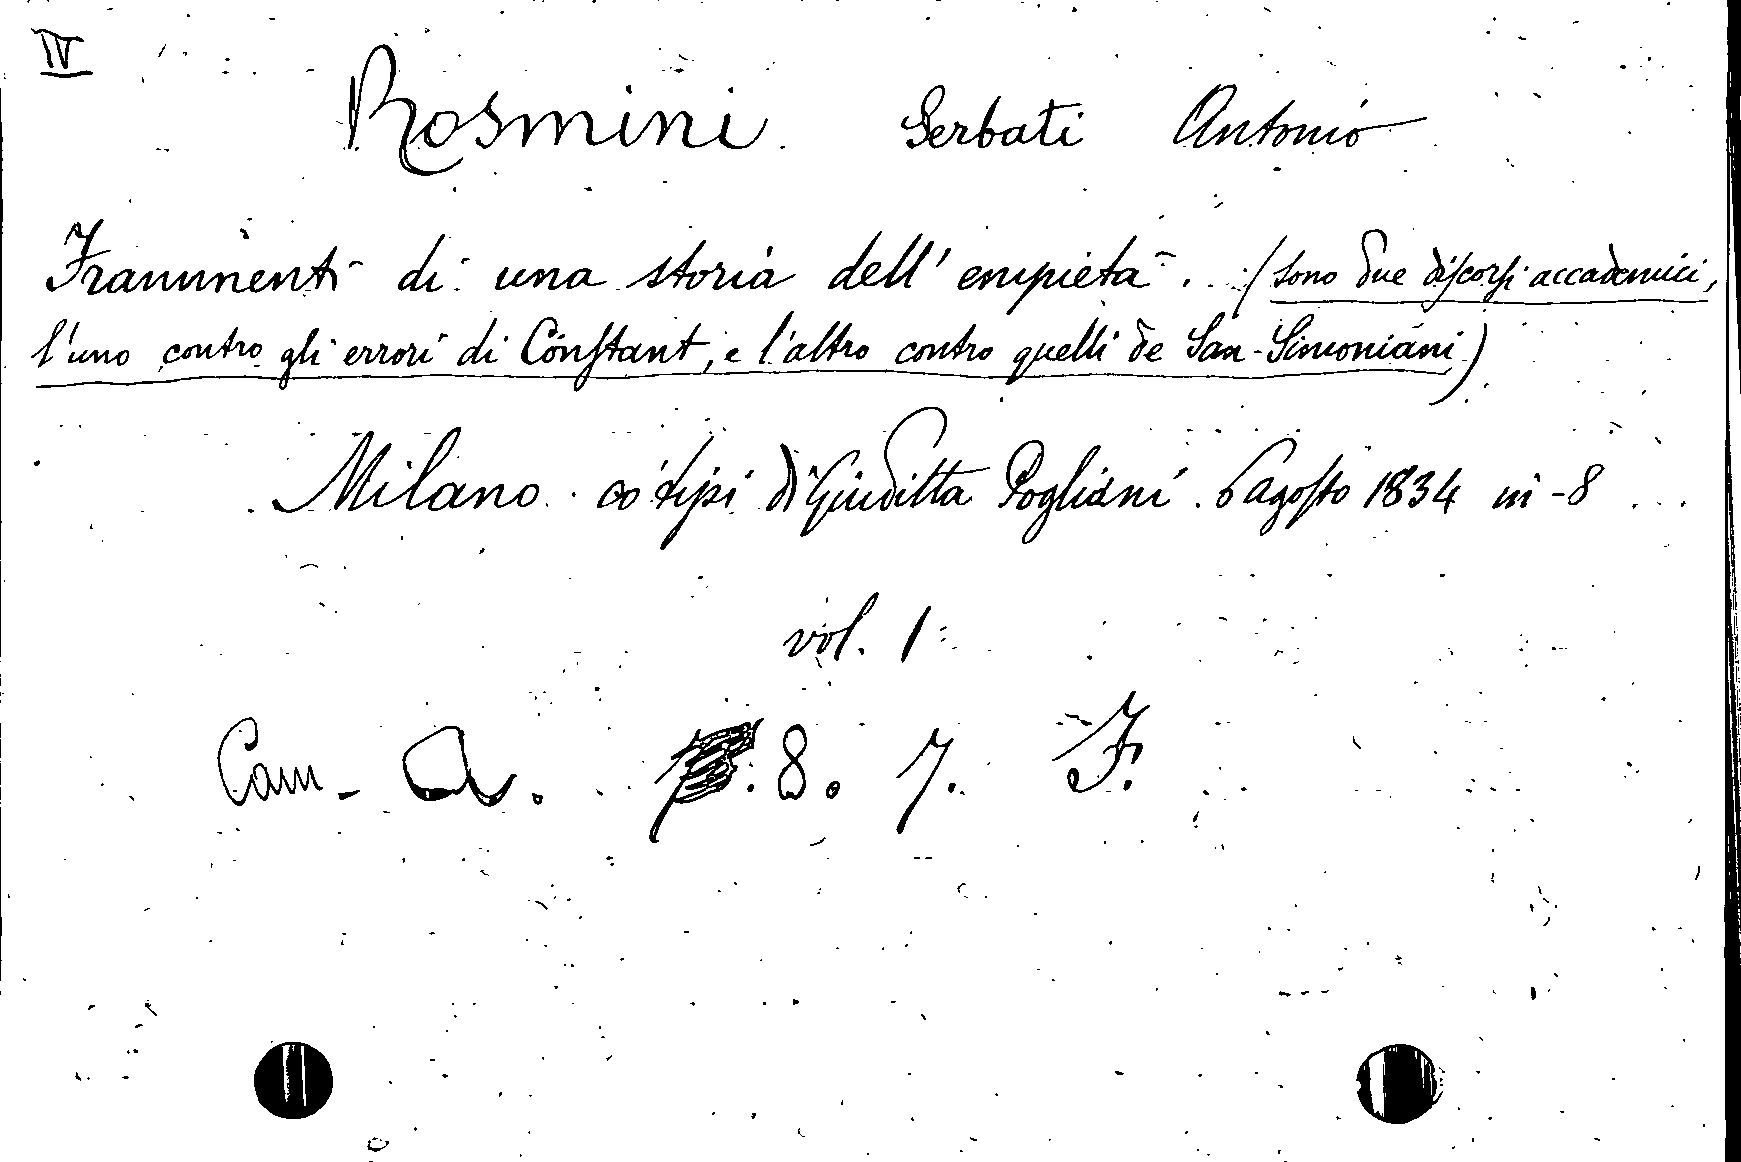 IV
Rosmini Serbati Antonio
Frammenti di una storia dell' empietà. (sono due discorsi accademici,
l'uno contro gli errori di Constant, e l'altro contro quelli de San-Simoniani)
Milano co' tipi di Giuditta Pogliani. 6 agosto 1834 in-8
vol. 1
Cam- A. 8. 7. F.